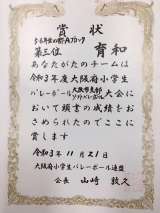 賞状
5・6年生の部Aブロック
第三位 育和
あなたがたのチームは
令和3年度大阪府小学生
バレーボール大阪市支部ソフトバレーボール大会に
おいて頭書の成績をお
さめられたのでここに
賞します
令和3年11月21日
大阪府小学生バレーボール連盟
会長 山崎敦久